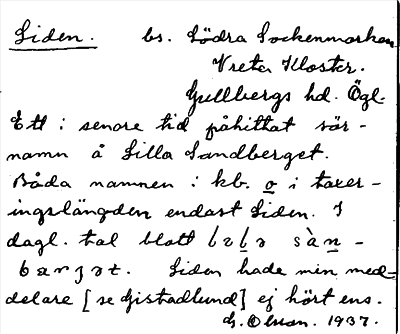 Liden. bs. Södra Sockenmarken
Vreta Kloster.
Gullbergs hd. Ögl.
Ett i senare tid påhittat sär-
namn å Lilla Sandberget.
Båda namnen i kb. o i taxer-
ingslängden endast Liden. I
dagl. tal blott sàn-
Liden hade min med-
delare [se Gistadlund] ej hört ens.
G. Olsson. 1937.